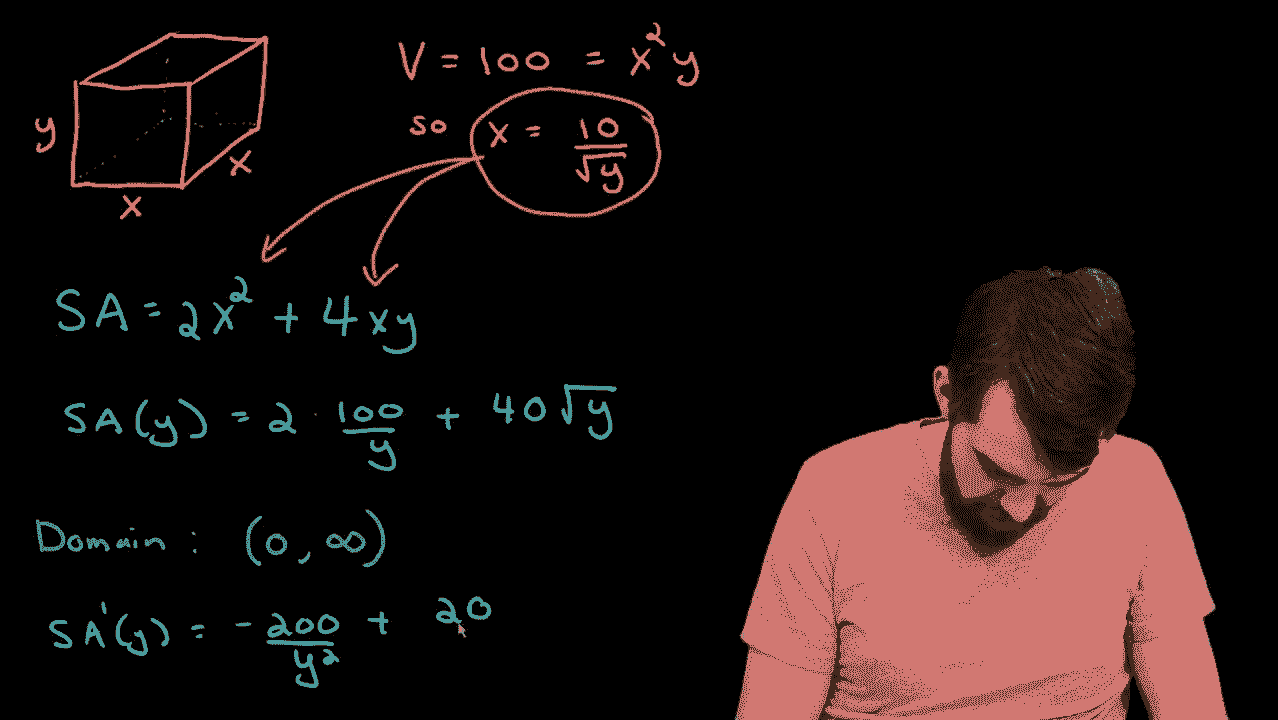 V = 100 = x²y
so x = 10/√y
y
x
x
SA = 2x² + 4xy
SA(y) = 2 · 100/y + 40√y
Domain : (0, ∞)
SA'(y) = -200/y² + 20